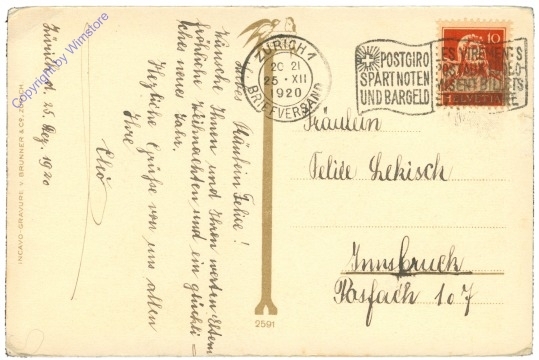 Copyright by Wimstore
Zürich, 25. Dez. 1920
Liebes Fräulein Felice!
Wünsche Ihnen und Ihren werten Eltern
fröhliche Weihnachten und ein glückli-
ches neues Jahr.
Herzliche Grüsse von uns allen
Ihre
INCAVO-GRAVURE V. BRUNNER & CO, ZÜRICH
2591
ZÜRICH 1
20 21
25. XII
1920
BRIEFVERSAND
POSTGIRO
SPART NOTEN
UND BARGELD
LES VIREMENTS
10
HELVETIA
Fräulein
Felice Lekisch
Innsbruck
Posfach 107